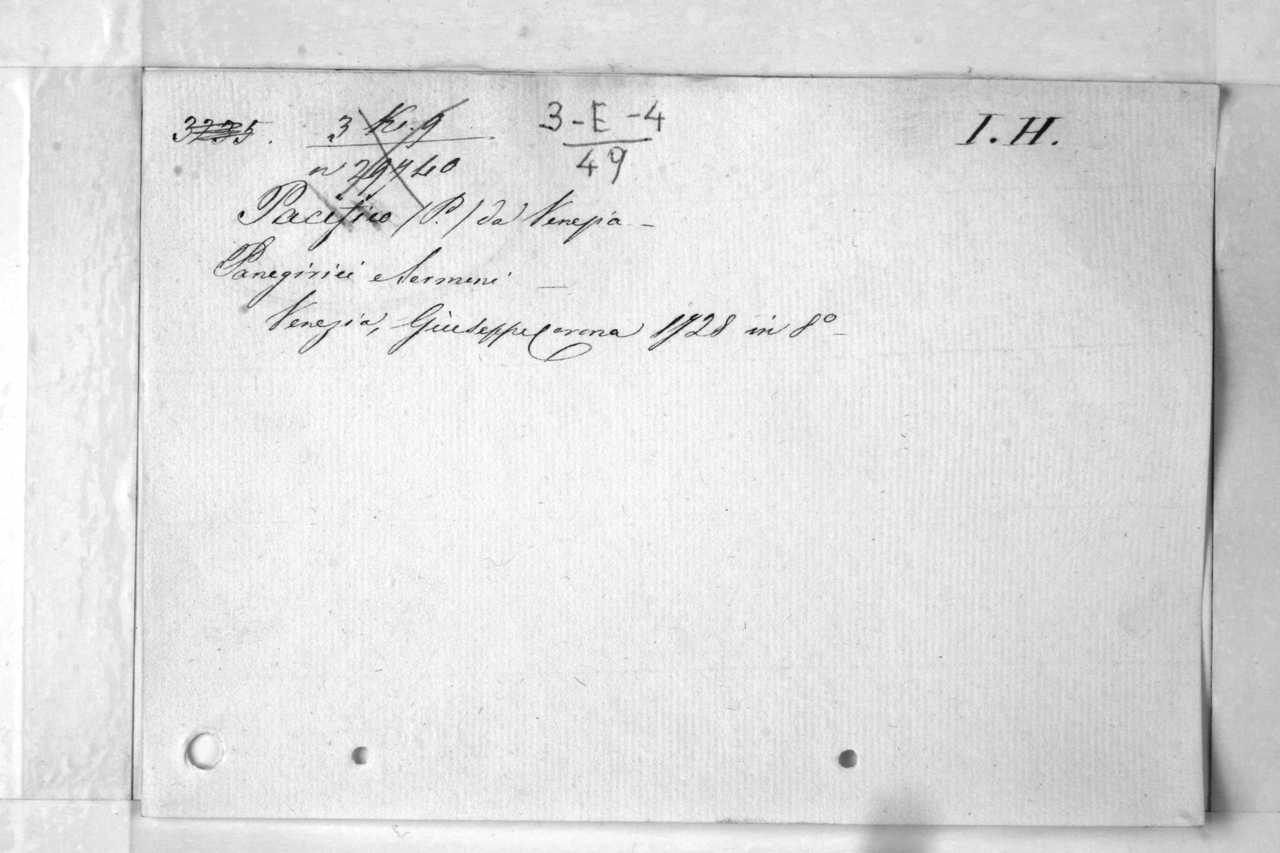 3235. 3 K. 9 3-E-4 I. H.
n 29740 49
Pacifico (P.) da Venezia -
Panegirici e Sermoni -
Venezia, Giuseppe Corona 1728 in 8º -